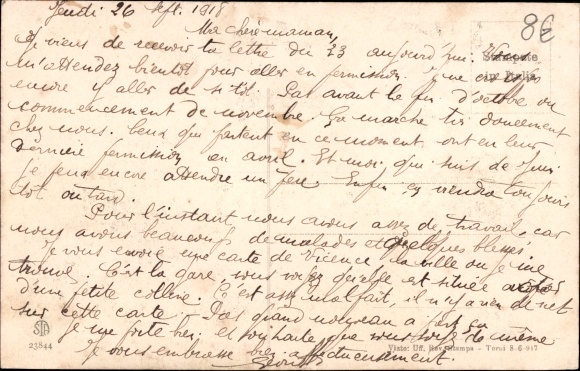 Jeudi 26 Sept. 1918
8€
Ma chère maman,
Je viens de recevoir ta lettre du 23 aujourd'hui. Vous
m'attendez bientôt pour aller en permission. Je ne
encore y aller de si tôt. Pas avant la fin d'octobre ou
commencement de novembre. Ça marche très doucement
chez nous. Ceux qui partent en ce moment ont eu leur
dernière permission en avril. Et moi qui suis de Juin
je peux encore attendre un peu. Enfin ça viendra toujours
tôt ou tard.
Pour l'instant nous avons assez de travail, car
nous avons beaucoup de malades et quelques blessés.
Je vous envoie une carte de Vicence la ville où je me
trouve. C'est la gare, vous voyez qu'elle est située
d'une petite colline. C'est assez mal fait, il n'y a rien de net
sur cette carte. Pas grand nouveau à part ça
je me porte bien et souhaite que vous soyez de même
Je vous embrasse bien affectueusement.
STA
23844
Visto: Uff. Rev. Stampa - Terni 8-6-917